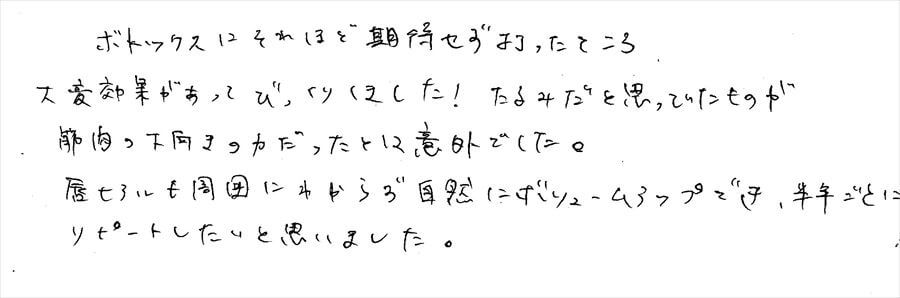 ボトックスにそれほど期待せず打ったところ
大変効果があってびっくりしました！ たるみだと思っていたものが
筋肉の下向きの力だったとは意外でした。
唇ヒアルも周囲にわからず自然にボリュームアップでき、半年ごとに
リピートしたいと思いました。